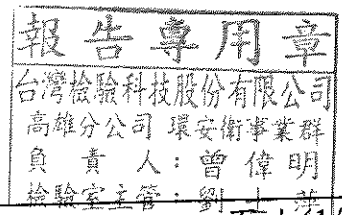 報告專用章
台灣檢驗科技股份有限公司
高雄分公司 環安衛事業群
負責人：曾偉明
檢驗室主管：劉